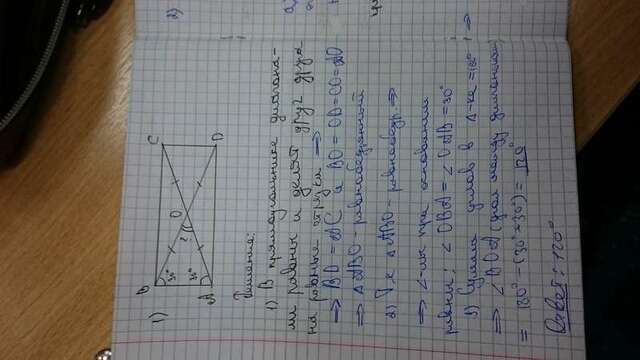 1)
B
C
30°
O
?
30°
A
D
Решение:
1) В прямоугольнике диагона-
ли равны и делят друг друга
на равные отрезки ⇒
⇒ BD = AC и BO = OD = CO = AO
⇒ ΔABO - равнобедренный
2) Т.к ΔABO - равнобедр. ⇒
⇒ ∠-лы при основании
равны; ∠OBA = ∠OAB = 30°
3) Сумма углов в Δ-ке = 180° ⇒
⇒ ∠BOA (угол между диагоналями)
= 180° - (30° + 30°) = 120°
Ответ: 120°
2)